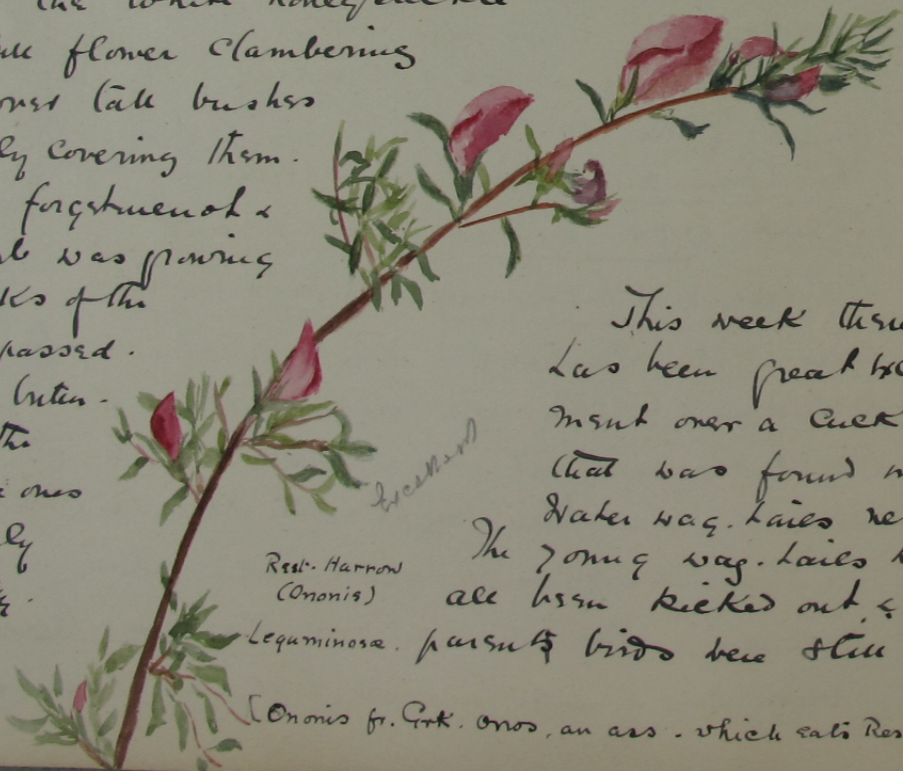 the white honeysuckle
flower clambering
over tall bushes
covering them.
forgetmenot &
was growing
of the
passed.
the
ones
This week there
has been great
ment over a Cuck
that was found
Water wag-tails ne
The young wag-tails
all been kicked out, &
parents birds were still
Excellent
Rest-Harrow
(Ononis)
Leguminosæ.
[Ononis fr. Grk. onos, an ass. which eats Res